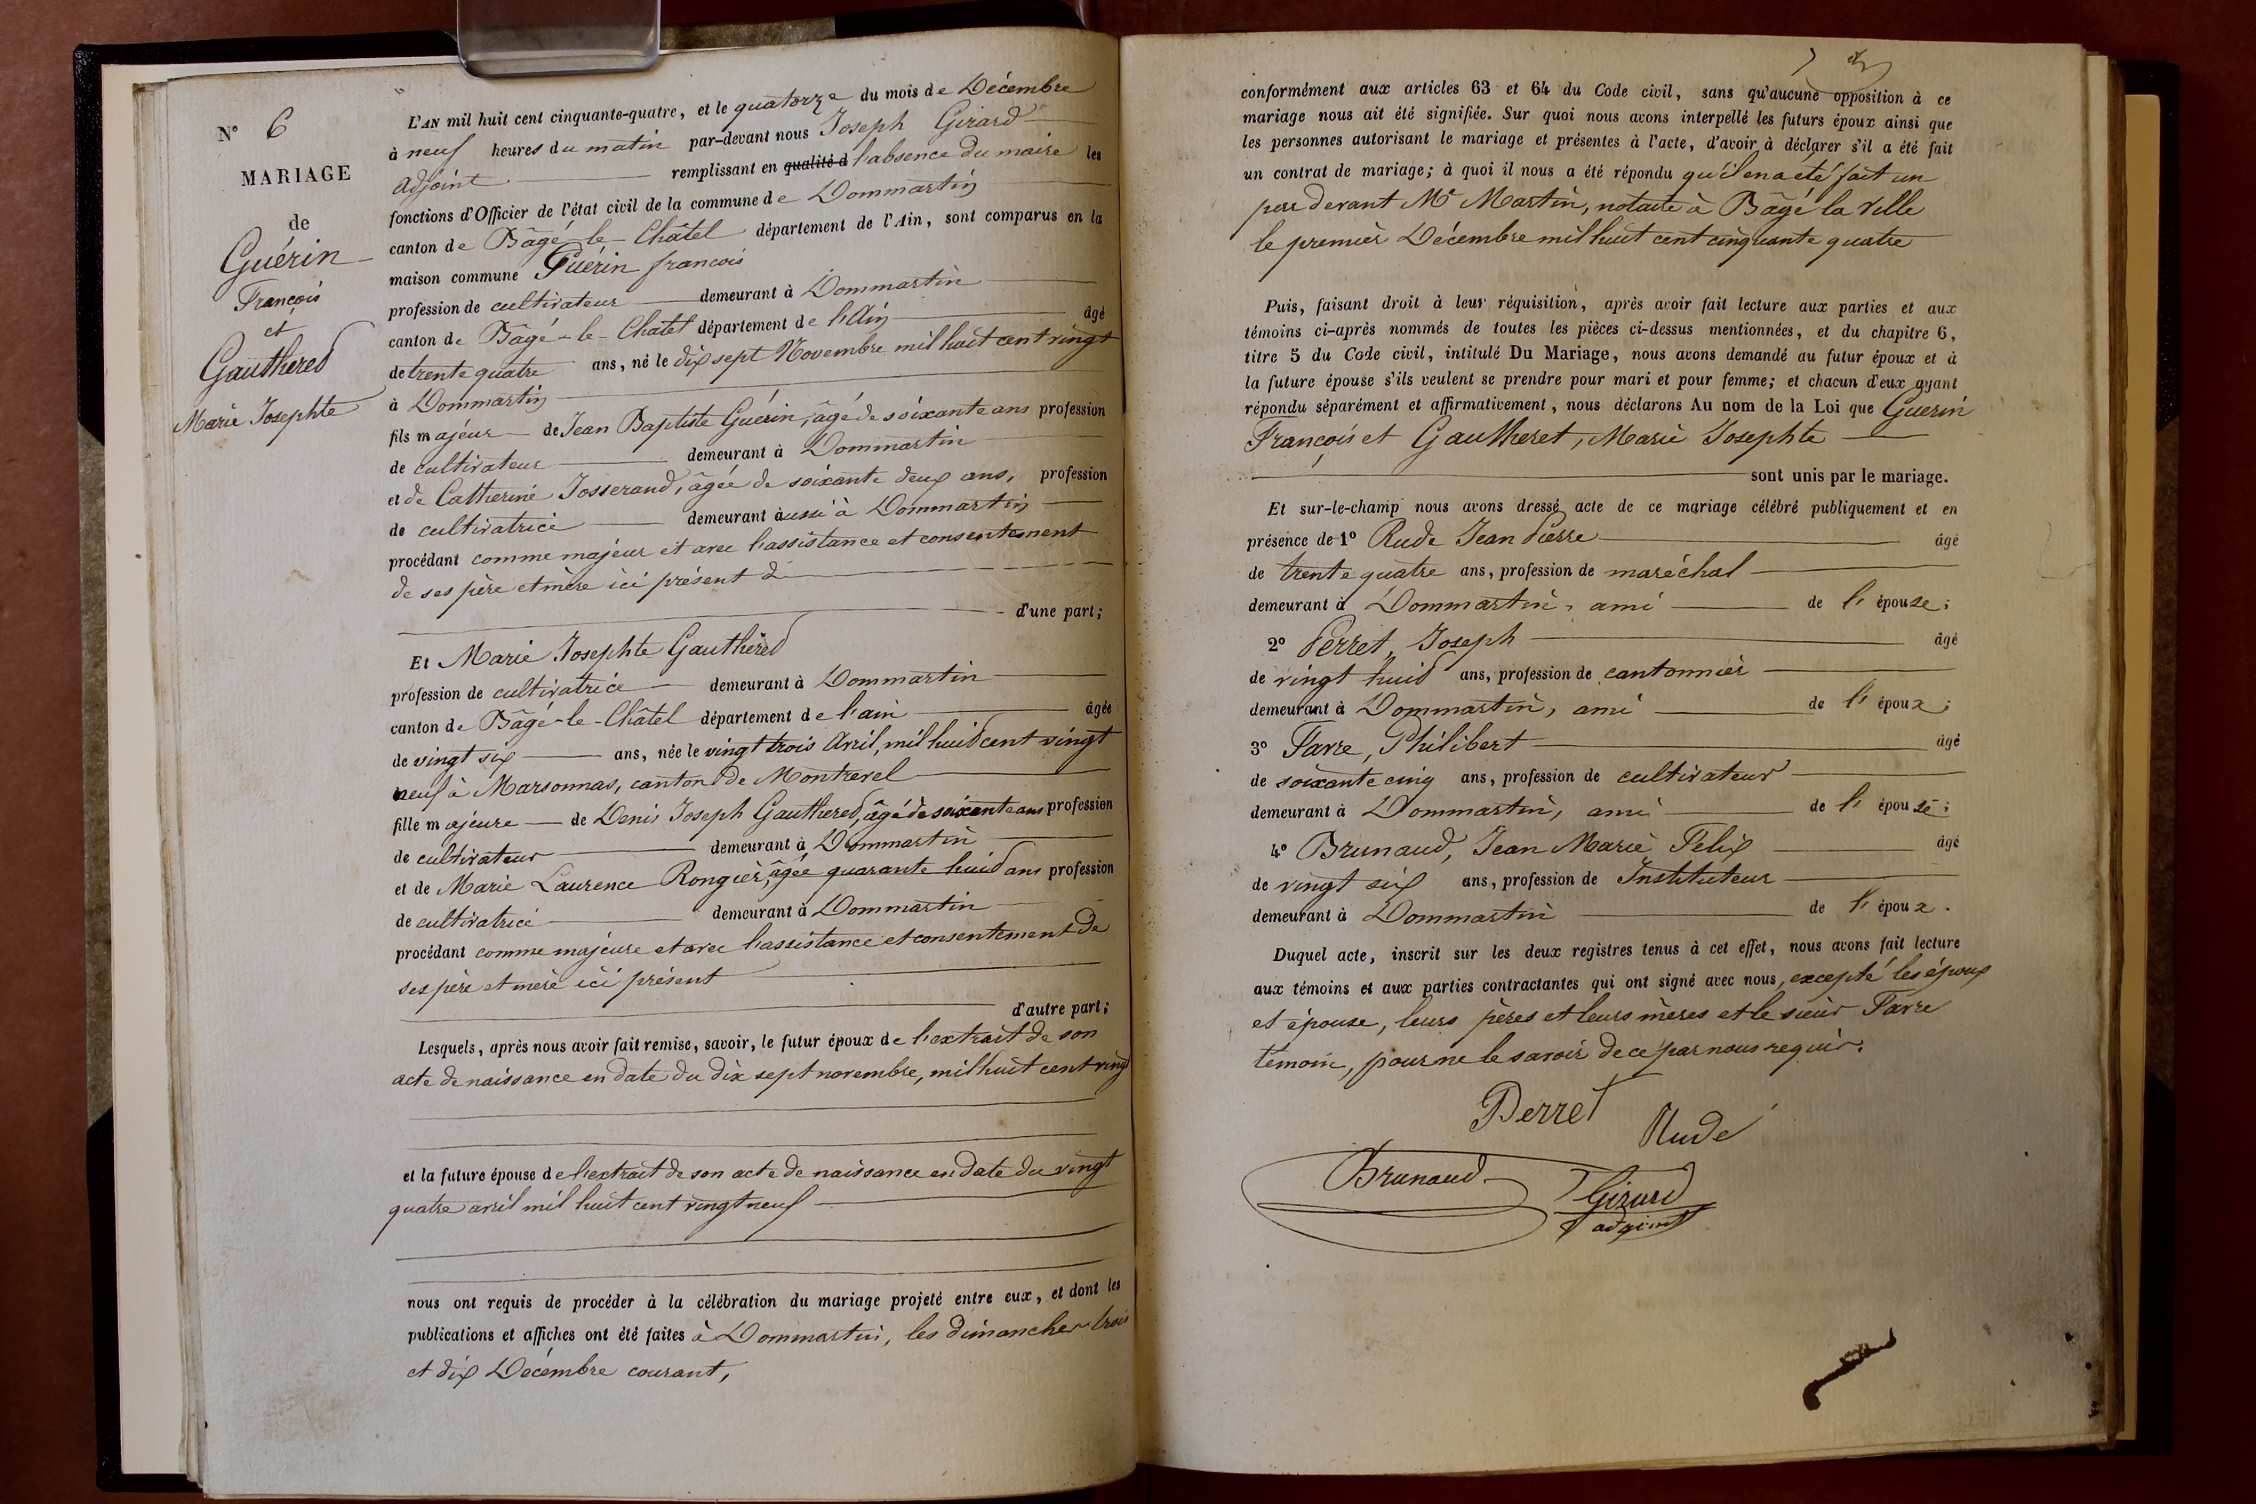 N° 6
MARIAGE
de
Guérin
François
et
Gautheret
Marie Josephte
L'AN mil huit cent cinquante-quatre, et le quatorze du mois de Décembre
à neuf heures du matin par-devant nous Joseph Girard
adjoint remplissant en qualité d l'absence du maire les
fonctions d'Officier de l'état civil de la commune de Dommartin
canton de Bâgé-le-Châtel département de l'Ain, sont comparus en la
maison commune Guérin françois
profession de cultivateur demeurant à Dommartin
canton de Bâgé-le-Chatel département de l'Ain âgé
de trente quatre ans, né le dix sept Novembre mil huit cent vingt
à Dommartin
fils majeur de Jean Baptiste Guérin, âgé de soixante ans profession
de cultivateur demeurant à Dommartin
et de Catherine Josserand, âgée de soixante deux ans, profession
de cultivatrice demeurant aussi à Dommartin
procédant comme majeur et avec l'assistance et consentement
de ses père et mère ici présent d
d'une part;
Et Marie Josephte Gautheret
profession de cultivatrice demeurant à Dommartin
canton de Bâgé-le-Châtel département de l'ain âgée
de vingt six ans, née le vingt trois Avril, mil huit cent vingt
neuf à Marsonnas, canton de Montrevel
fille majeure de Denis Joseph Gautheret, âgé de soixante ans profession
de cultivateur demeurant à Dommartin
et de Marie Laurence Rongier, âgée quarante huit ans profession
de cultivatrice demeurant à Dommartin
procédant comme majeure et avec l'assistance et consentement de
ses père et mère ici présent
d'autre part;
Lesquels, après nous avoir fait remise, savoir, le futur époux de l'extrait de son
acte de naissance en date du dix sept novembre, mil huit cent vingt
et la future épouse de l'extrait de son acte de naissance en date du vingt
quatre avril mil huit cent vingt neuf
nous ont requis de procéder à la célébration du mariage projeté entre eux, et dont les
publications et affiches ont été faites à Dommartin, les dimanches trois
et dix Décembre courant,
conformément aux articles 63 et 64 du Code civil, sans qu'aucune opposition à ce
mariage nous ait été signifiée. Sur quoi nous avons interpellé les futurs époux ainsi que
les personnes autorisant le mariage et présentes à l'acte, d'avoir à déclarer s'il a été fait
un contrat de mariage; à quoi il nous a été répondu qu'il en a été fait un
par devant Me Martin, notaire à Bâgé la Ville
le premier Décembre mil huit cent cinquante quatre
Puis, faisant droit à leur réquisition, après avoir fait lecture aux parties et aux
témoins ci-après nommés de toutes les pièces ci-dessus mentionnées, et du chapitre 6,
titre 5 du Code civil, intitulé Du Mariage, nous avons demandé au futur époux et à
la future épouse s'ils veulent se prendre pour mari et pour femme; et chacun d'eux ayant
répondu séparément et affirmativement, nous déclarons Au nom de la Loi que Guerin
François et Gautheret, Marie Josephte
sont unis par le mariage.
Et sur-le-champ nous avons dressé acte de ce mariage célébré publiquement et en
présence de 1° Rude Jean Pierre âgé
de trente quatre ans, profession de maréchal
demeurant à Dommartin, ami de l' épouse;
2° Perret, Joseph âgé
de vingt huit ans, profession de cantonnier
demeurant à Dommartin, ami de l' époux;
3° Favre, Philibert âgé
de soixante cinq ans, profession de cultivateur
demeurant à Dommartin, ami de l' épouse;
4° Brunaud, Jean Marie Félix âgé
de vingt six ans, profession de Instituteur
demeurant à Dommartin de l' époux.
Duquel acte, inscrit sur les deux registres tenus à cet effet, nous avons fait lecture
aux témoins et aux parties contractantes qui ont signé avec nous, excepté les époux
et épouse, leurs pères et leurs mères et le sieur Favre
témoin, pour ne le savoir de ce par nous requis.
Perret
Rude
Brunaud
Girard
adjoint